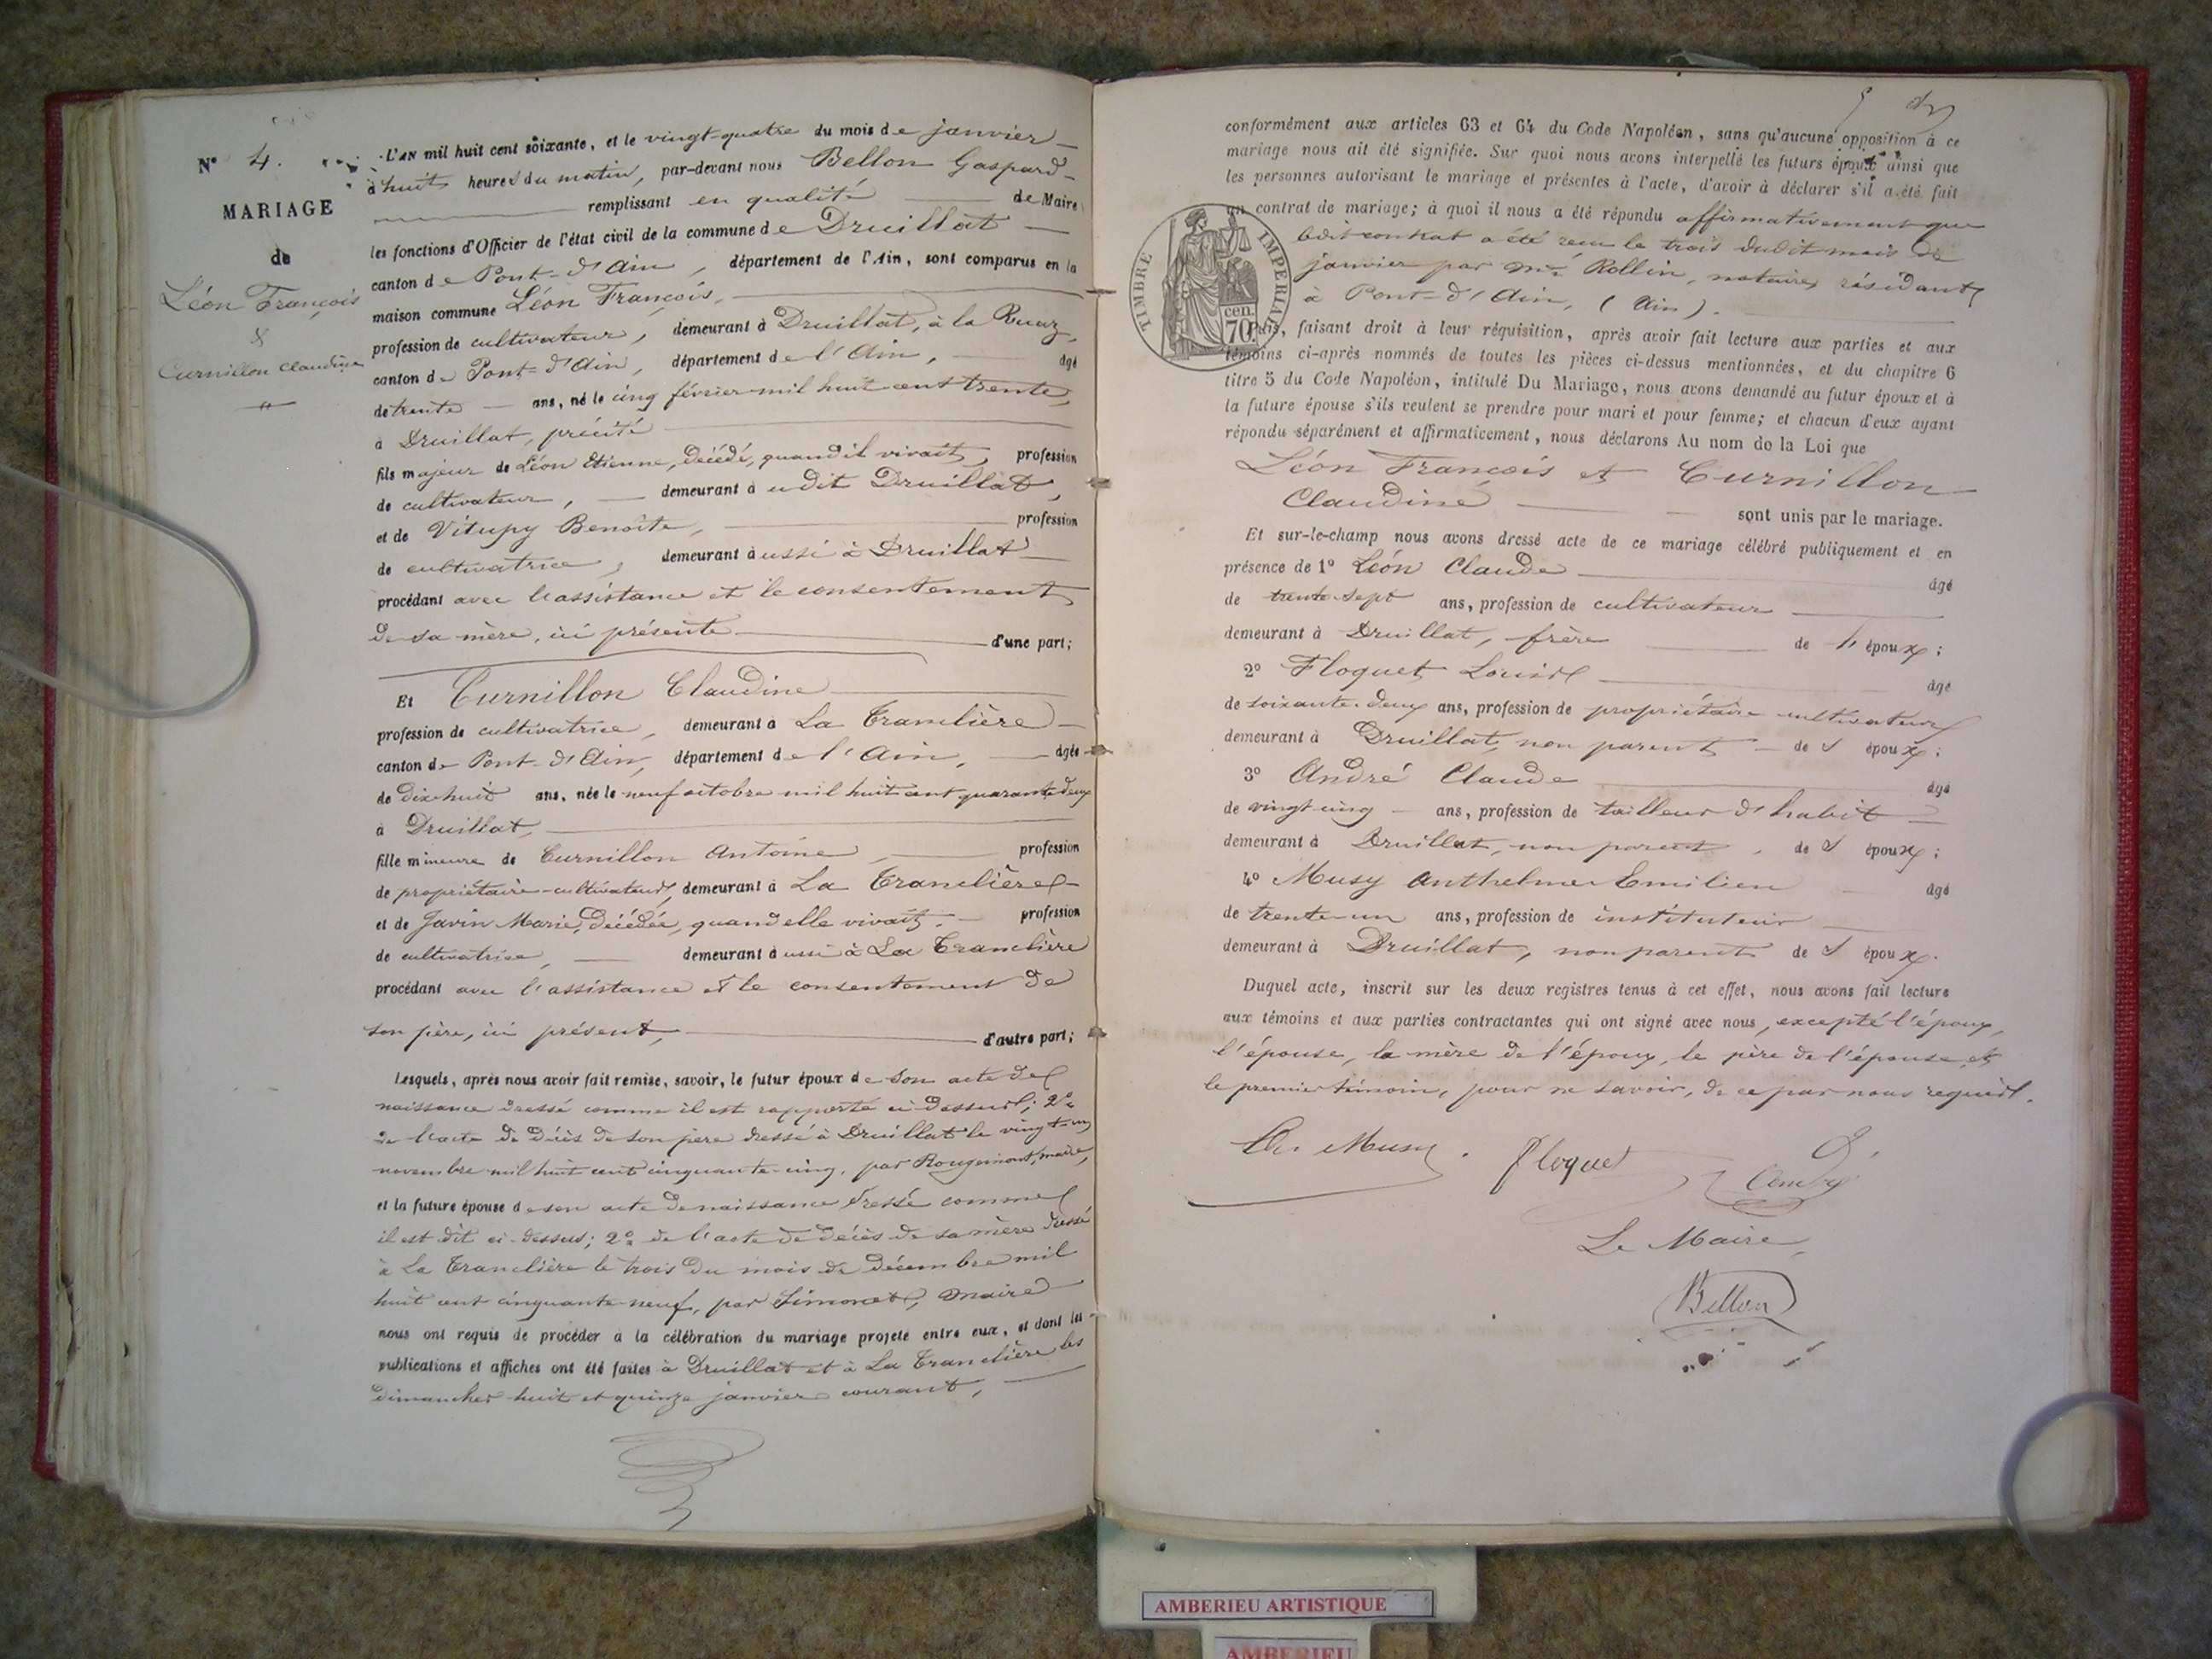 N° 4.
MARIAGE
de
Léon François
&
Curnillon Claudine
L'AN mil huit cent soixante, et le vingt-quatre du mois de janvier
à huit heures du matin, par-devant nous Bellon Gaspard
remplissant en qualité de Maire
les fonctions d'Officier de l'état civil de la commune de Druillat
canton de Pont-d'Ain, département de l'Ain, sont comparus en la
maison commune Léon François,
profession de cultivateur, demeurant à Druillat, à la Ruaz,
canton de Pont-d'Ain, département de l'Ain, âgé
de trente ans, né le cinq février mil huit cent trente,
à Druillat, précité
fils majeur de Léon Etienne, décédé, quand il vivait, profession
de cultivateur, demeurant à udit Druillat,
et de Vitupy Benoîte, profession
de cultivatrice, demeurant aussi à Druillat
procédant avec l'assistance et le consentement
de sa mère, ici présente d'une part;
Et Curnillon Claudine
profession de cultivatrice, demeurant à La Tranclière
canton de Pont-d'Ain, département de l'Ain, âgée
de dix-huit ans, née le neuf octobre mil huit cent quarante deux
à Druillat,
fille mineure de Curnillon Antoine, profession
de propriétaire-cultivateur, demeurant à La Tranclière
et de Javin Marie, décédée, quand elle vivait, profession
de cultivatrice, demeurant aussi à La Tranclière
procédant avec l'assistance et le consentement de
son père, ici présent, d'autre part;
Lesquels, après nous avoir fait remise, savoir, le futur époux de son acte de
naissance dressé comme il est rapporté ci-dessus; 2°
de l'acte de décès de son père dressé à Druillat le vingt-un
novembre mil huit cent cinquante-cinq, par Rougemont, maire,
et la future épouse de son acte de naissance dressé comme
il est dit ci-dessus; 2° de l'acte de décès de sa mère dressé
à La Tranclière le trois du mois de décembre mil
huit cent cinquante-neuf, par Simonet, maire
nous ont requis de procéder à la célébration du mariage projeté entre eux, et dont les
publications et affiches ont été faites à Druillat et à La Tranclière les
dimanches huit et quinze janvier courant,
conformément aux articles 63 et 64 du Code Napoléon, sans qu'aucune opposition à ce
mariage nous ait été signifiée. Sur quoi nous avons interpellé les futurs époux ainsi que
les personnes autorisant le mariage et présentes à l'acte, d'avoir à déclarer s'il a été fait
un contrat de mariage; à quoi il nous a été répondu affirmativement que
ledit contrat a été reçu le trois dudit mois de
janvier par Me Rollin, notaire, résidant
à Pont-d'Ain, (Ain).
TIMBRE IMPERIAL
cen
70.
Puis, faisant droit à leur réquisition, après avoir fait lecture aux parties et aux
témoins ci-après nommés de toutes les pièces ci-dessus mentionnées, et du chapitre 6
titre 5 du Code Napoléon, intitulé Du Mariage, nous avons demandé au futur époux et à
la future épouse s'ils veulent se prendre pour mari et pour femme; et chacun d'eux ayant
répondu séparément et affirmativement, nous déclarons Au nom de la Loi que
Léon François et Curnillon
Claudine sont unis par le mariage.
Et sur-le-champ nous avons dressé acte de ce mariage célébré publiquement et en
présence de 1° Léon Claude âgé
de trente-sept ans, profession de cultivateur
demeurant à Druillat, frère de l' époux;
2° Floquet Louis âgé
de soixante-deux ans, profession de propriétaire cultivateur
demeurant à Druillat, non parent de s époux;
3° André Claude âgé
de vingt-cinq ans, profession de tailleur d'habit
demeurant à Druillat, non parent, de s époux;
4° Musy Anthelme Emilien âgé
de trente-un ans, profession de instituteur
demeurant à Druillat, non parent de s époux.
Duquel acte, inscrit sur les deux registres tenus à cet effet, nous avons fait lecture
aux témoins et aux parties contractantes qui ont signé avec nous, excepté l'époux,
l'épouse, la mère de l'époux, le père de l'épouse et
le premier témoin, pour ne savoir, de ce par nous requis.
Musy Floquet André
Le Maire,
Bellon
AMBERIEU ARTISTIQUE
AMBERIEU